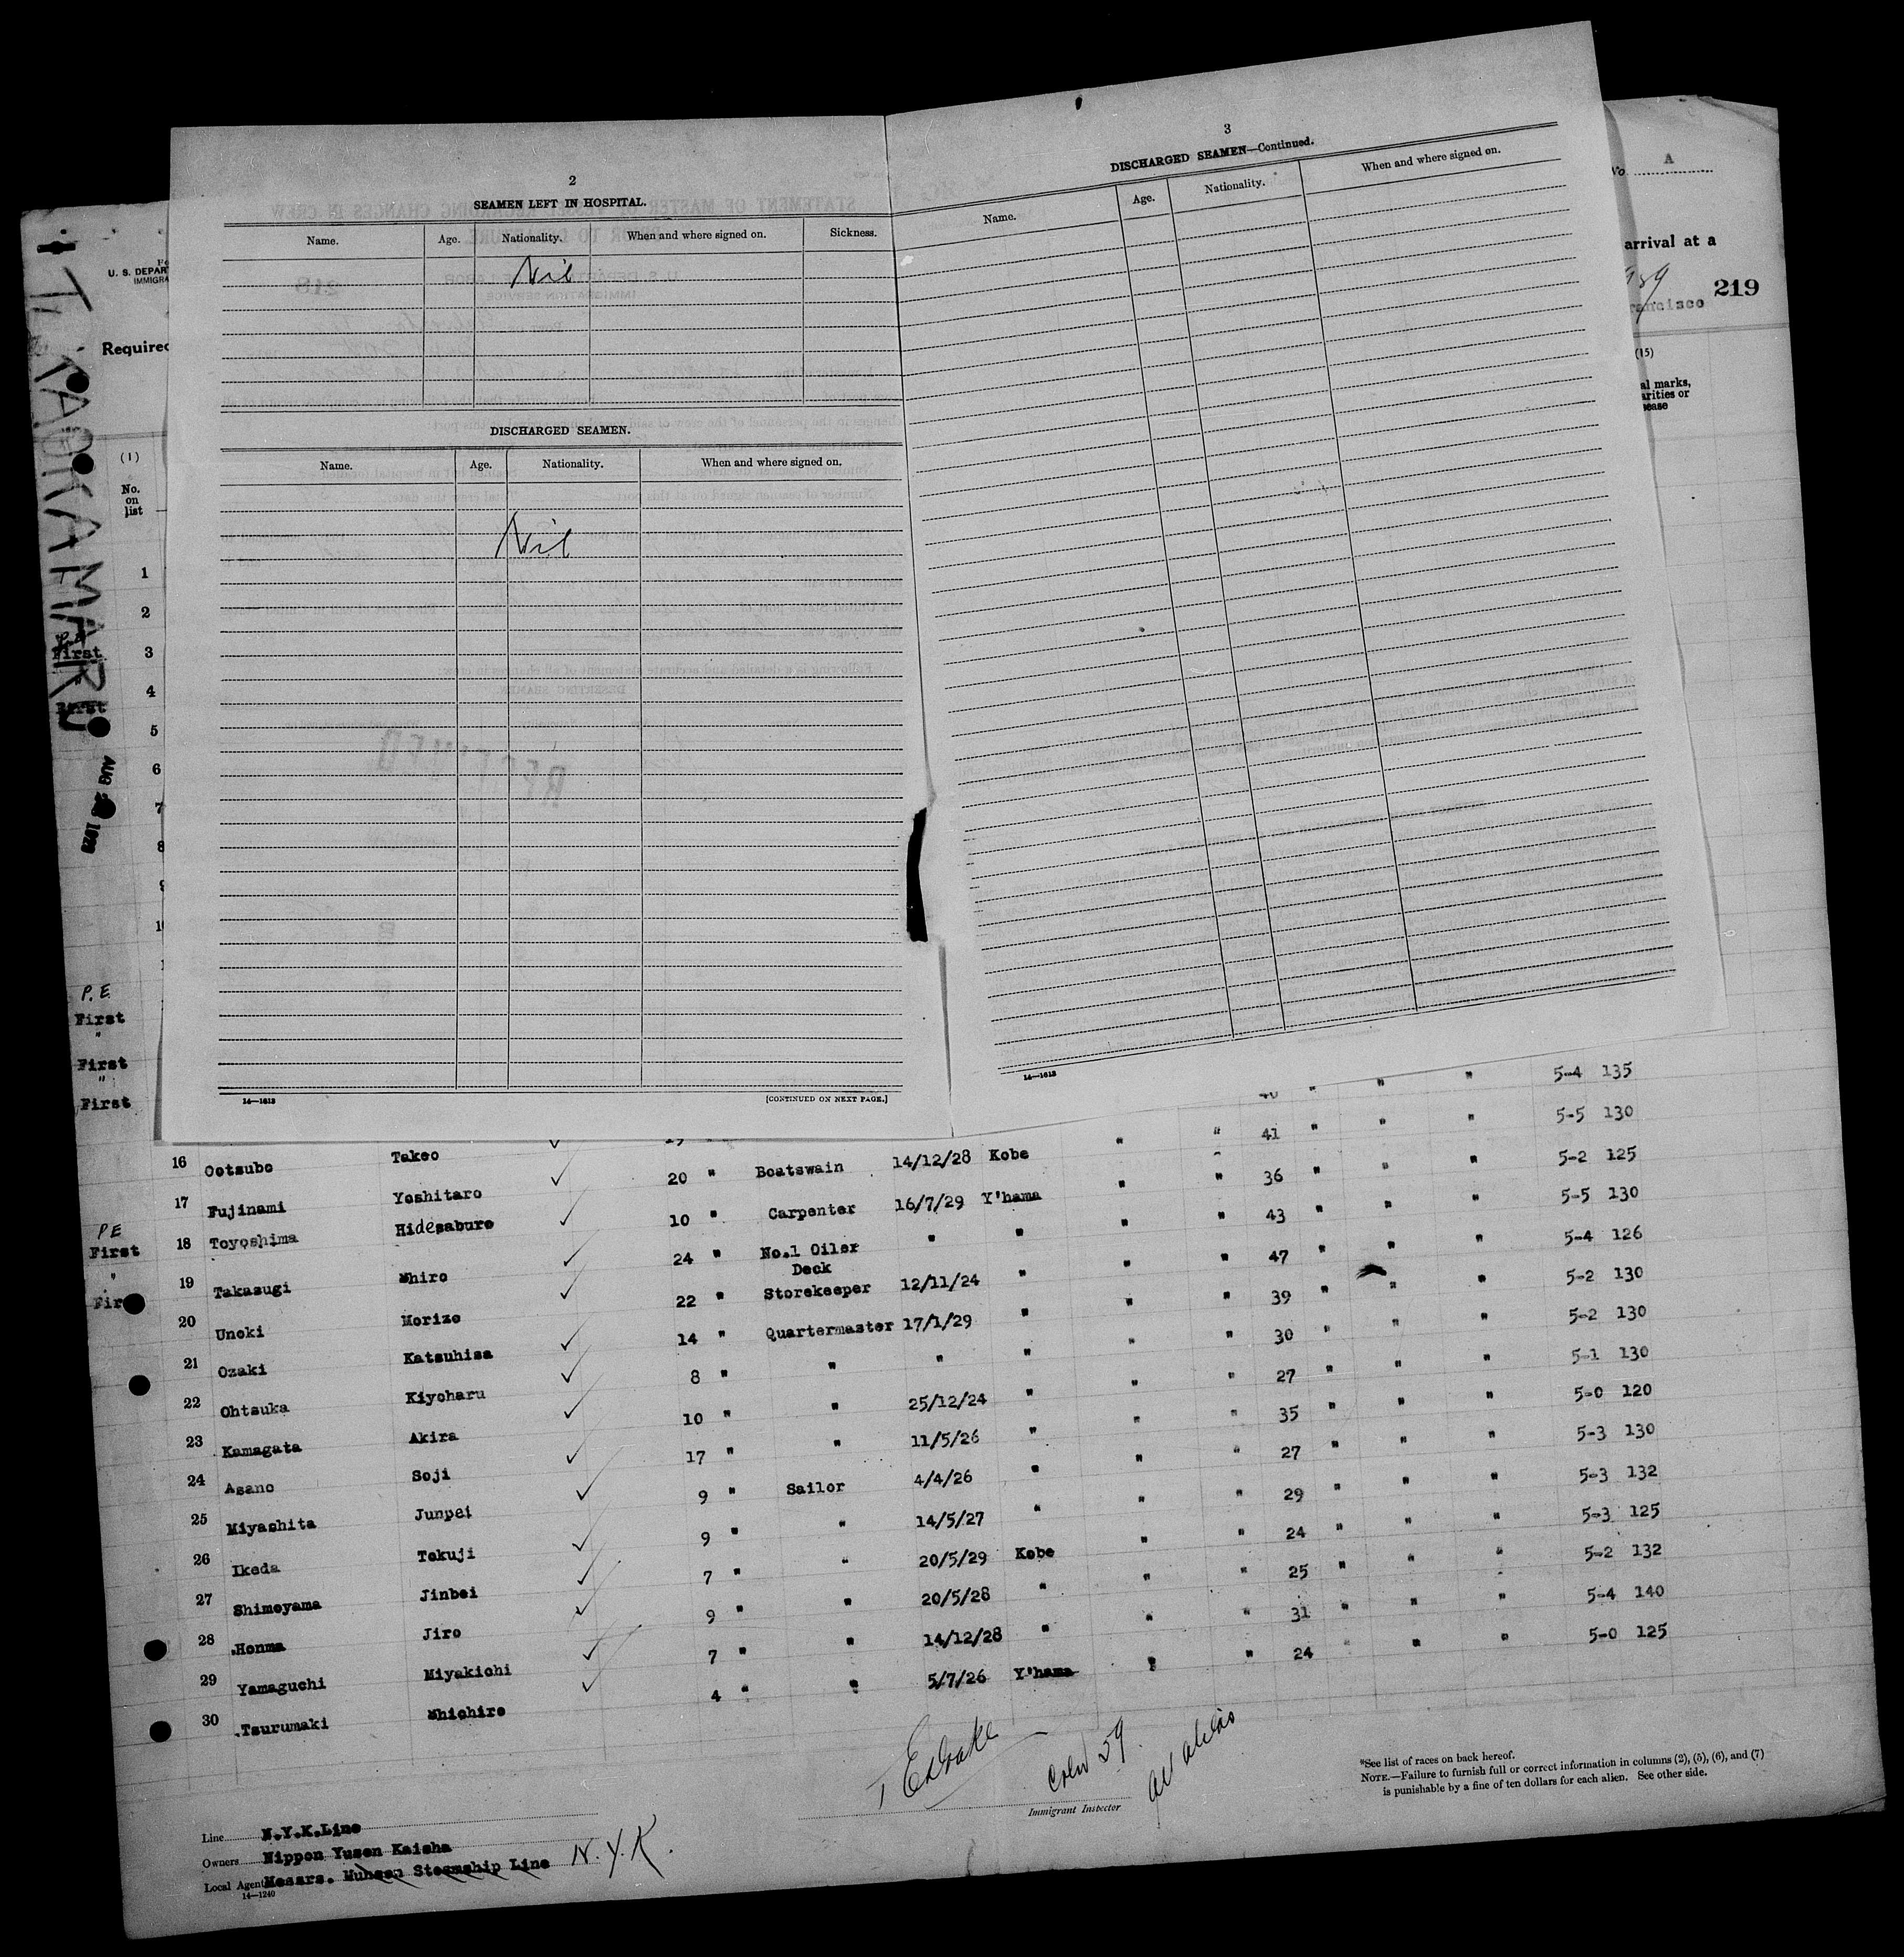 2
SEAMEN LEFT IN HOSPITAL.
Name. Age. Nationality. When and where signed on. Sickness.
Nil
DISCHARGED SEAMEN.
Name. Age. Nationality. When and where signed on.
Nil
14—1613 [CONTINUED ON NEXT PAGE.]
3
DISCHARGED SEAMEN—Continued.
Name. Age. Nationality. When and where signed on.
14—1613
No. A
arrival at a
219
rancisco
(15)
al marks,
arities or
sease
U. S. DEPAR
IMMIGRA
Required
TATAOKA MARU
AUG
(1)
No.
on
list
1
2
First 3
4
First
5
6
7
8
9
P.E.
First
"
First
"
First
16 Ootsubo Takeo ✓ 19 " 40 " " " 5-4 135
17 Fujinami Yoshitaro ✓ 20 " Boatswain 14/12/28 Kobe " " 41 " " " 5-5 130
PE
First 18 Toyoshima Hidesaburo ✓ 10 " Carpenter 16/7/29 Y'hama " " 36 " " " 5-2 125
" 19 Takasugi Mhiro ✓ 24 " No.1 Oiler " " " " 43 " " " 5-5 130
Deck
20 Unoki Morizo ✓ 22 " Storekeeper 12/11/24 " " " 47 " " " 5-4 126
21 Ozaki Katsuhisa ✓ 14 " Quartermaster 17/1/29 " " " 39 " " " 5-2 130
22 Ohtsuka Kiyoharu ✓ 8 " " " " " " 30 " " " 5-2 130
23 Kamagata Akira ✓ 10 " " 25/12/24 " " " 27 " " " 5-1 130
24 Asano Soji ✓ 17 " " 11/5/26 " " " 35 " " " 5-0 120
25 Miyashita Junpei ✓ 9 " Sailor 4/4/26 " " " 27 " " " 5-3 130
26 Ikeda Tokuji ✓ 9 " " 14/5/27 " " " 29 " " " 5-3 132
27 Shimoyama Jinbei ✓ 7 " " 20/5/29 Kobe " " 24 " " " 5-3 125
28 Honma Jiro ✓ 9 " " 20/5/28 " " " 25 " " " 5-2 132
29 Yamaguchi Miyakichi ✓ 7 " " 14/12/28 " " " 31 " " " 5-4 140
30 Tsurumaki Mhichiro ✓ 4 " " 5/7/26 Y'hama " " 24 " " " 5-0 125
Crew 59
Immigrant Inspector
*See list of races on back hereof.
NOTE.—Failure to furnish full or correct information in columns (2), (5), (6), and (7)
is punishable by a fine of ten dollars for each alien. See other side.
Line N.Y.K.Line
Owners Nippon Yusen Kaisha
Local Agent Messrs. Munson Steamship Line N.Y.K.
14—1240